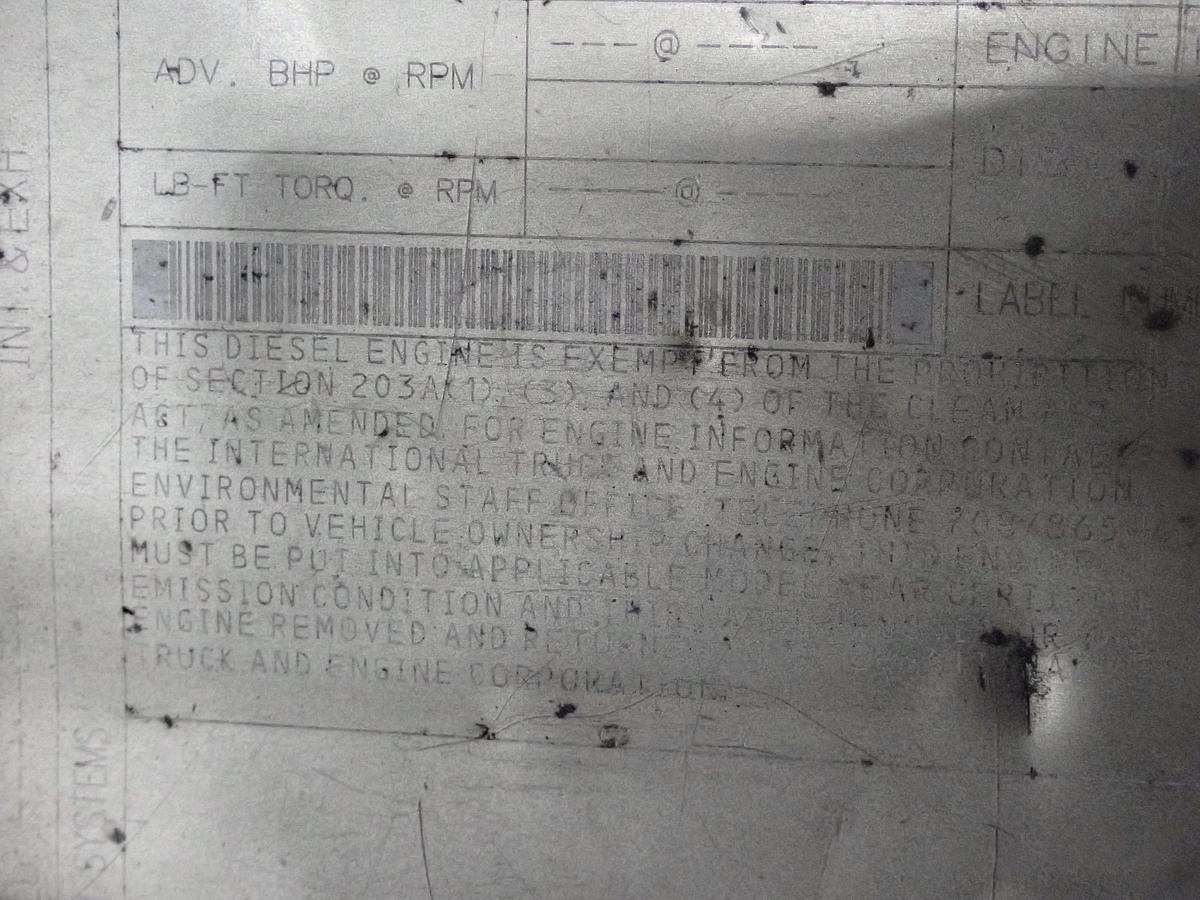 ADV. BHP @ RPM
---@----
ENGINE
LB-FT TORQ. @ RPM
-----@----
LABEL
INT.&EXH
SYSTEMS
THIS DIESEL ENGINE IS EXEMPT FROM THE PROHIBITION
OF SECTION 203A(1), (3), AND (4) OF THE CLEAN AIR
ACT, AS AMENDED. FOR ENGINE INFORMATION CONTACT
THE INTERNATIONAL TRUCK AND ENGINE CORPORATION
ENVIRONMENTAL STAFF OFFICE, TELEPHONE
PRIOR TO VEHICLE OWNERSHIP CHANGE, THIS ENGINE
MUST BE PUT INTO APPLICABLE MODEL YEAR CERTIFIED
EMISSION CONDITION AND THIS
ENGINE REMOVED AND
TRUCK AND ENGINE CORPORATION.